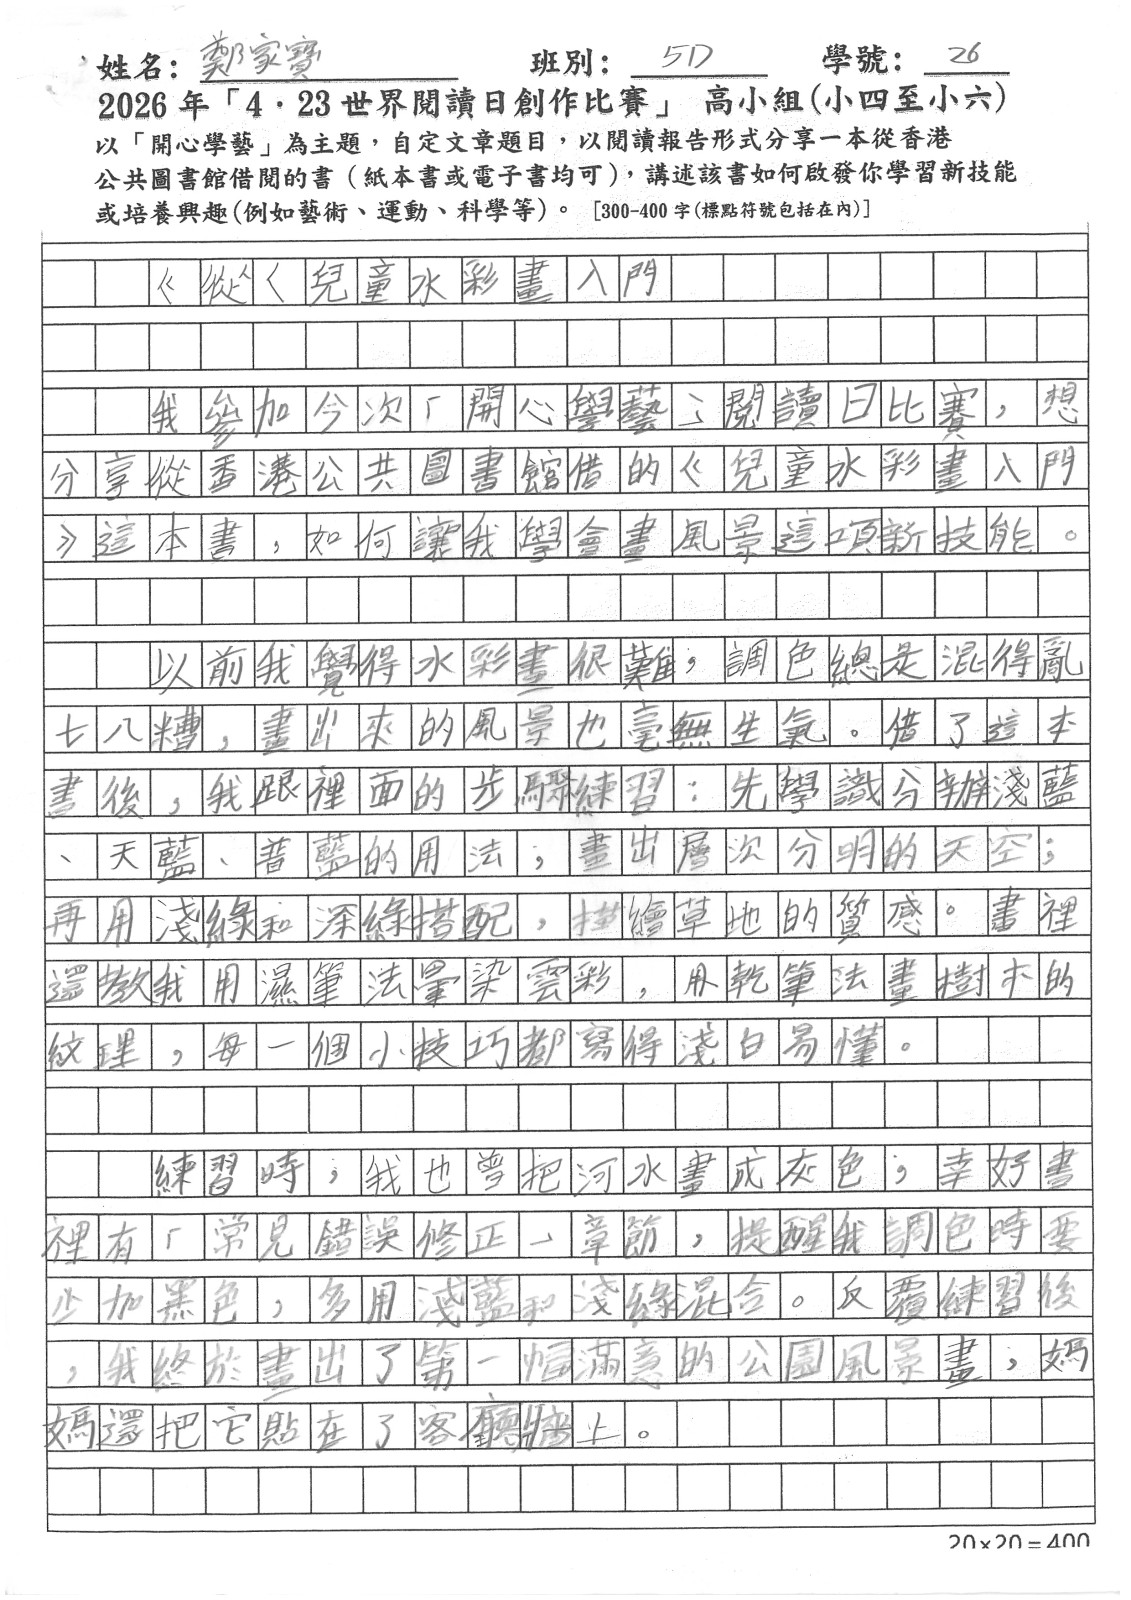 姓名：鄭家寶 班別：5D 學號：26
2026 年「4．23 世界閱讀日創作比賽」 高小組(小四至小六)
以「開心學藝」為主題，自定文章題目，以閱讀報告形式分享一本從香港
公共圖書館借閱的書（紙本書或電子書均可），講述該書如何啟發你學習新技能
或培養興趣(例如藝術、運動、科學等)。 [300-400 字(標點符號包括在內)]
《從〈兒童水彩畫入門
我參加今次「開心學藝」閱讀日比賽，想
分享從香港公共圖書館借的《兒童水彩畫入門
》這本書，如何讓我學會畫風景這項新技能。
以前我覺得水彩畫很難，調色總是混得亂
七八糟，畫出來的風景也毫無生氣。借了這本
書後，我跟裡面的步驟練習：先學識分辦淺藍
、天藍、普藍的用法，畫出層次分明的天空；
再用淺綠和深綠搭配，描繪草地的質感。書裡
還教我用濕筆法暈染雲彩，用乾筆法畫樹木的
紋理，每一個小技巧都寫得淺白易懂。
練習時，我也曾把河水畫成灰色，幸好書
裡有「常見錯誤修正」章節，提醒我調色時要
少加黑色，多用淺藍和淺綠混合。反覆練習後
，我終於畫出了第一幅滿意的公園風景畫，媽
媽還把它貼在了客廳牆上。
20×20=400